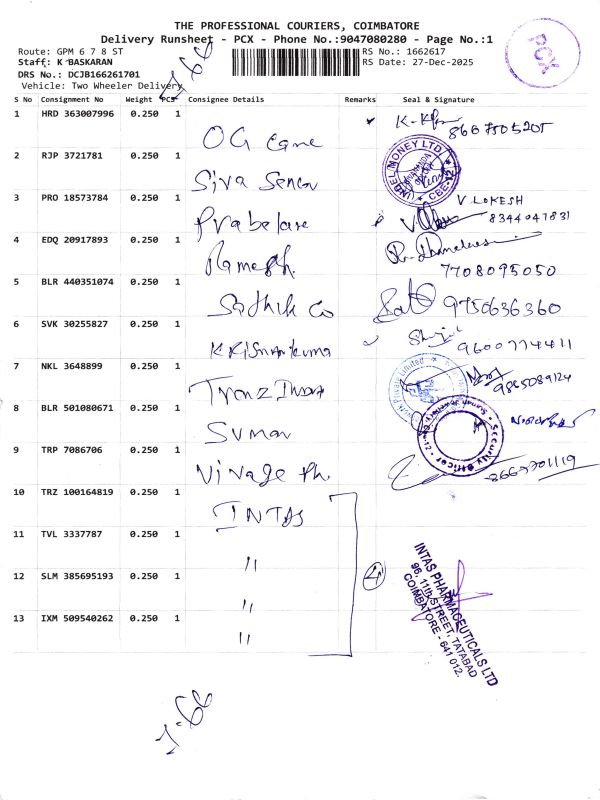 THE PROFESSIONAL COURIERS, COIMBATORE
Delivery Runsheet - PCX - Phone No.:9047080280 - Page No.:1
Route: GPM 6 7 8 ST
RS No.: 1662617
Staff: K BASKARAN
RS Date: 27-Dec-2025
DRS No.: DCJB166261701
Vehicle: Two Wheeler Delivery
PCX
S No Consignment No Weight PCS Consignee Details Remarks Seal & Signature
1 HRD 363007996 0.250 1 OG
8667505205
2 RJP 3721781 0.250 1 Siva
INDEL MONEY LTD
3 PRO 18573784 0.250 1
V LOKESH
8344047831
4 EDQ 20917893 0.250 1 Ramesh
7708095050
5 BLR 440351074 0.250 1 Sathik Co
9750636360
6 SVK 30255827 0.250 1
9600774411
7 NKL 3648899 0.250 1
Private Limited
8 BLR 501080671 0.250 1 Suman
Security Officer
9 TRP 7086706 0.250 1 Ph.
10 TRZ 100164819 0.250 1 INTAS
11 TVL 3337787 0.250 1 "
12 SLM 385695193 0.250 1 "
4
13 IXM 509540262 0.250 1 "
INTAS PHARMACEUTICALS LTD
96, 11th STREET, TATABAD
COIMBATORE - 641 012.